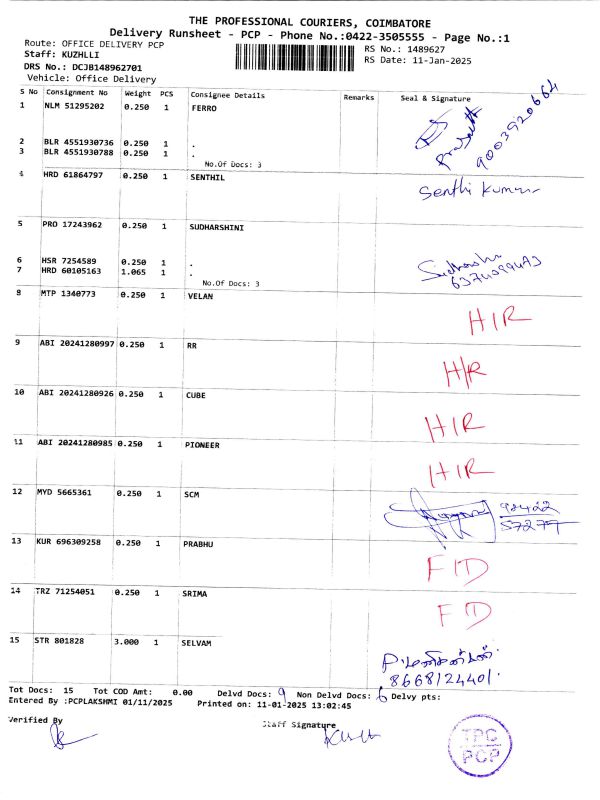 THE PROFESSIONAL COURIERS, COIMBATORE
Delivery Runsheet - PCP - Phone No.:0422-3505555 - Page No.:1
Route: OFFICE DELIVERY PCP
RS No.: 1489627
Staff: KUZHLLI
RS Date: 11-Jan-2025
DRS No.: DCJB148962701
Vehicle: Office Delivery
S No Consignment No Weight PCS Consignee Details Remarks Seal & Signature
1 NLM 51295202 0.250 1 FERRO
9003920664
2 BLR 4551930736 0.250 1 .
3 BLR 4551930788 0.250 1 .
No.Of Docs: 3
4 HRD 61864797 0.250 1 SENTHIL
Senthil Kumar
5 PRO 17243962 0.250 1 SUDHARSHINI
6 HSR 7254589 0.250 1 .
7 HRD 60105163 1.065 1 .
No.Of Docs: 3
8 MTP 1340773 0.250 1 VELAN
H/R
9 ABI 20241280997 0.250 1 RR
H/R
10 ABI 20241280926 0.250 1 CUBE
H/R
11 ABI 20241280985 0.250 1 PIONEER
H/R
12 MYD 5665361 0.250 1 SCM
98422
57277
13 KUR 696309258 0.250 1 PRABHU
F/D
14 TRZ 71254051 0.250 1 SRIMA
F/D
15 STR 801828 3.000 1 SELVAM
8668124401.
Tot Docs: 15 Tot COD Amt: 0.00 Delvd Docs: 9 Non Delvd Docs: 6 Delvy pts:
Entered By :PCPLAKSHMI 01/11/2025 Printed on: 11-01-2025 13:02:45
Verified By Staff Signature
TPC
PCP